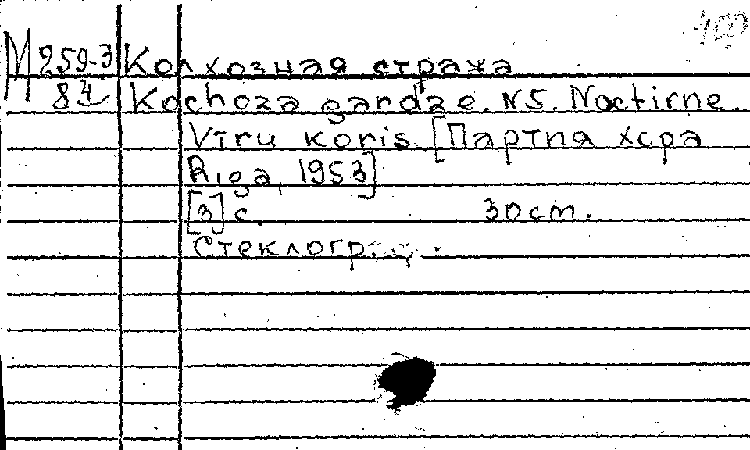 400
М 259-3 Колхозная стража
84 Kochoza gardze. N5. Noctirne.
Vīru koris. [Партия хора
Riga, 1953]
[3] с. 30 cm.